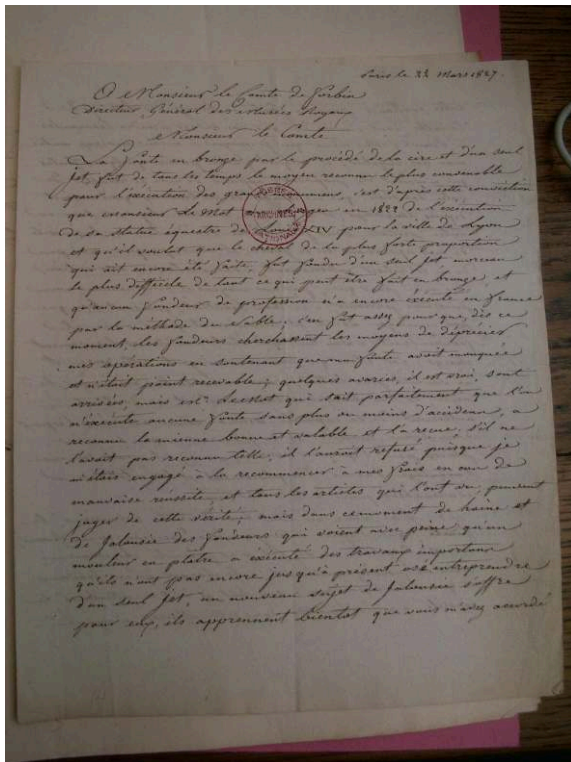 Paris le 22 Mars 1827.
A Monsieur le Comte de Forbin
Directeur Général des Musées Royaux
Monsieur le Comte
La fonte en bronze par le procédé de la cire et d'un seul
jet, fut de tous les temps le moyen reconnu le plus convenable
pour l'exécution des grands monumens, c'est d'après cette conviction
que monsieur Le Mot en 1822 de l'exécution
de sa statue équestre de Louis XIV pour la ville de Lyon
et qu'il voulut que le cheval de la plus forte proportion
qui ait encore été faite, fut fondu d'un seul jet morceau
le plus difficile de tout ce qui peut être fait en bronze et
qu'aucun fondeur de profession n'a encore exécuté en france
par la méthode du sable; c'en fut assez pour que, dès ce
moment, les fondeurs cherchassent les moyens de déprécier
mes opérations en soutenant que ma fonte avoit manquée
et n'étoit point recevable; quelques avaries, il est vrai, sont
arrivées, mais Mr. Lemot qui sait parfaitement que l'on
n'exécute aucune fonte sans plus ou moins d'accidens, a
reconnu la mienne bonne et valable et l'a reçue, s'il ne
l'avoit pas reconnu telle, il l'auroit refusé puisque je
m'étois engagé à la recommencer à mes frais en cas de
mauvaise réussite, et tous les artistes qui l'ont vu, peuvent
juger de cette vérité; mais dans ce moment de haine et
de Jalousie des fondeurs qui voient avec peine qu'un
mouleur en plâtre a exécuté des travaux importans
qu'ils n'ont pas encore jusqu'à présent osé entreprendre
d'un seul Jet, un nouveau sujet de Jalousie s'offre
pour eux, ils apprennent bientot que vous m'avez accordé